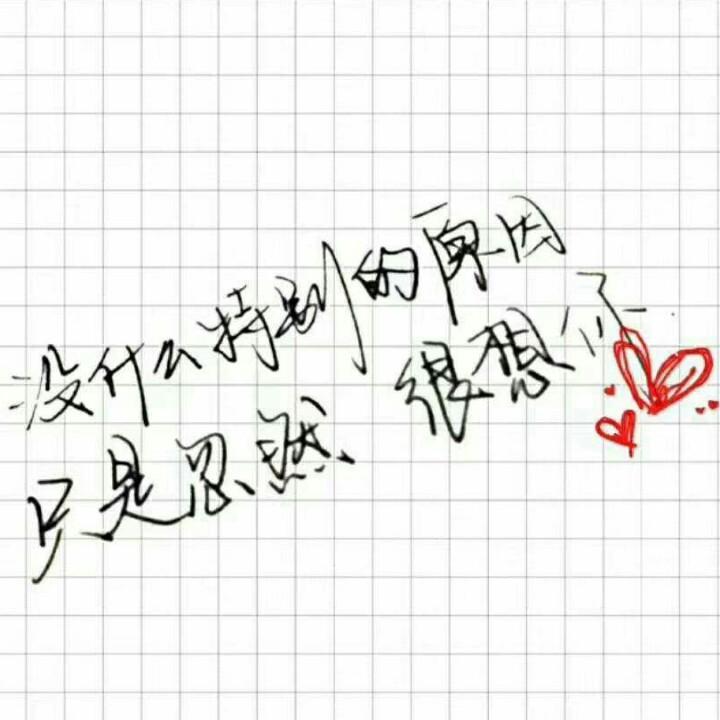 没什么特别的原因
只是忽然 很想你